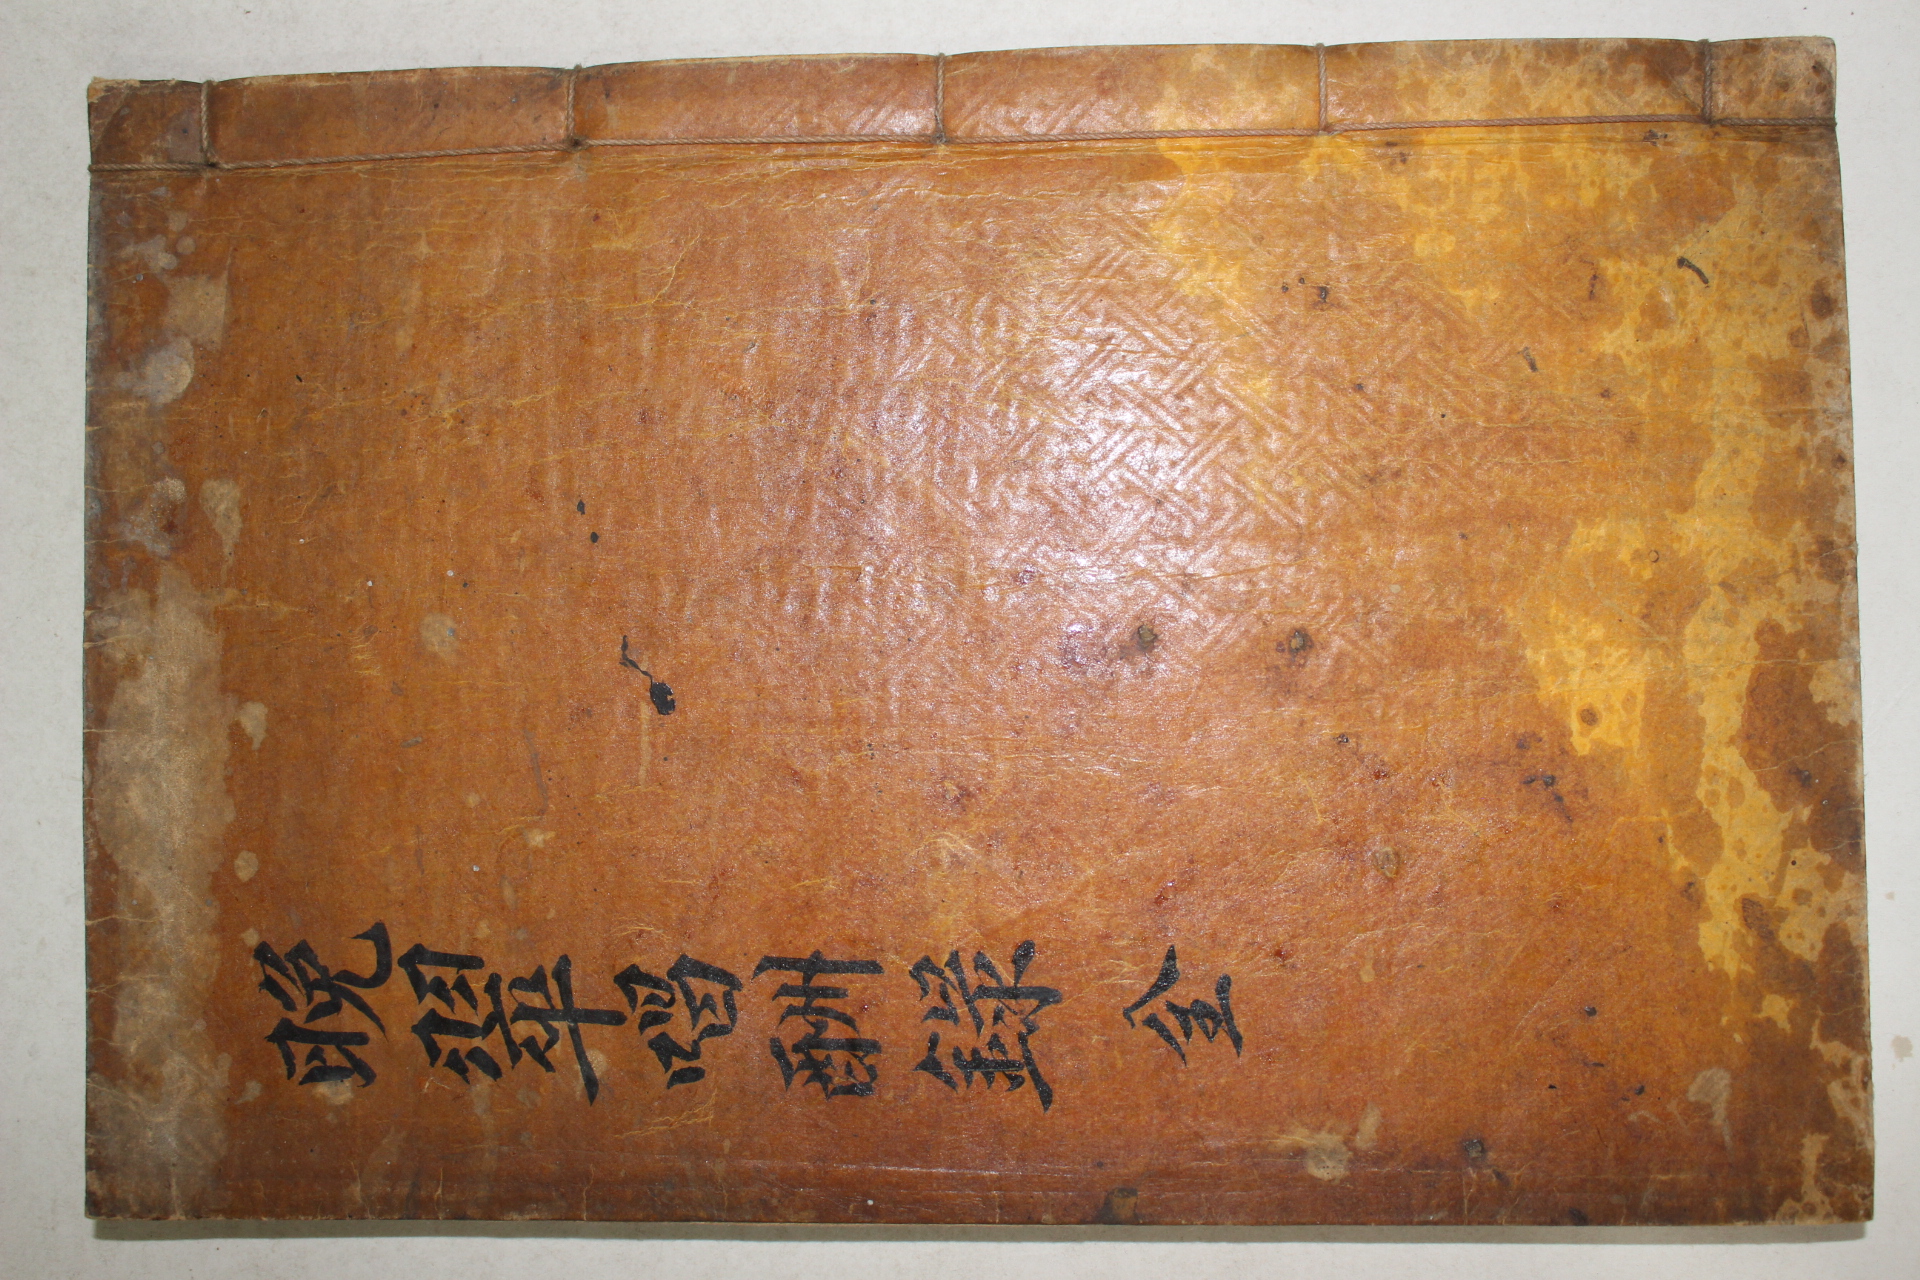 晩翠唱酬錄 全